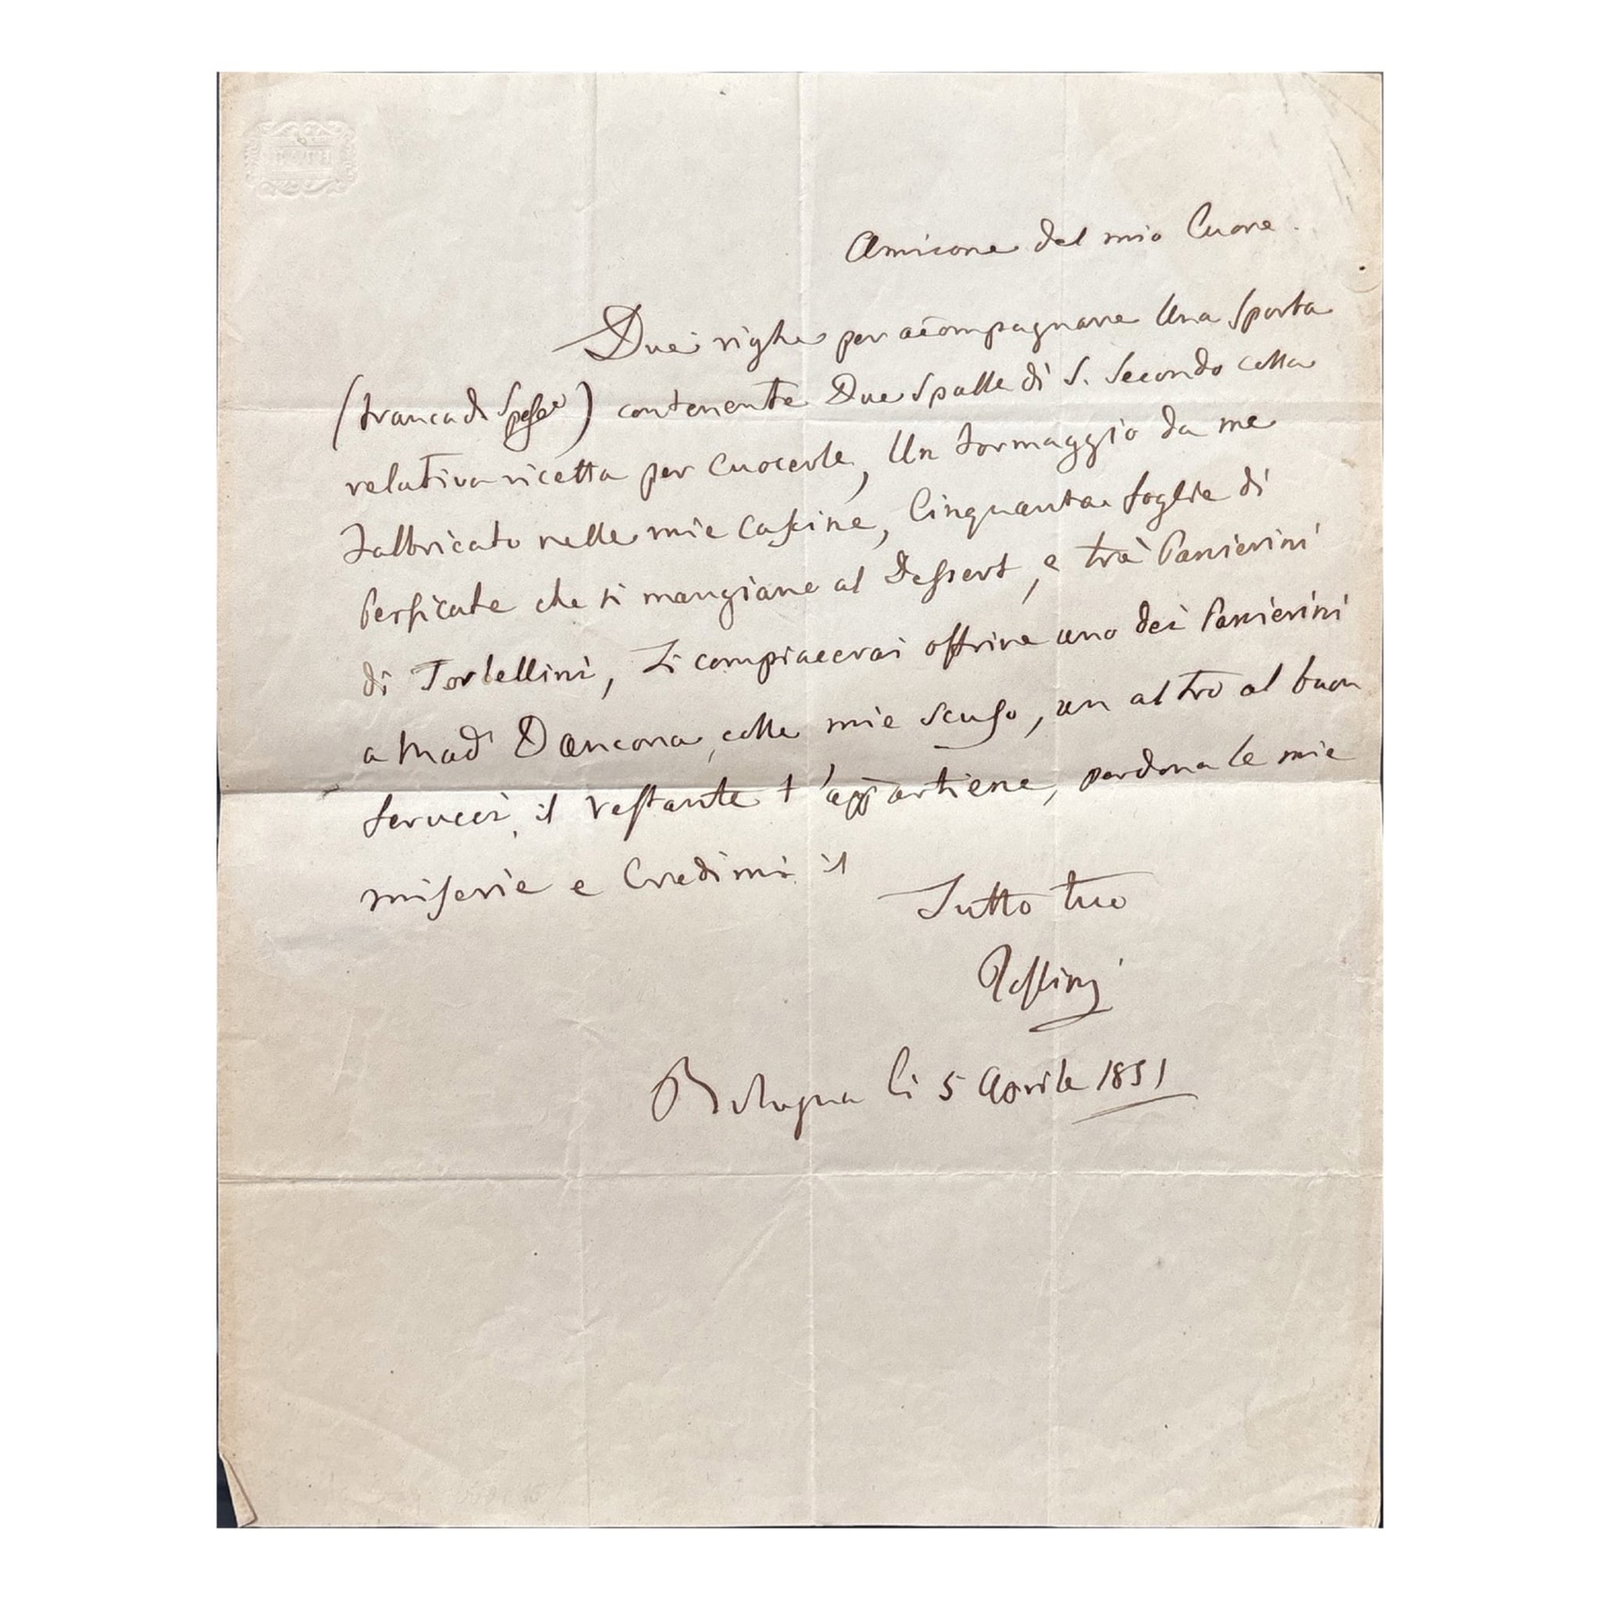 BATH
Amicone del mio Cuore.
Due righe per accompagnare Una Sporta
(franca di Spese) contenente Due Spalle di S. Secondo colla
relativa ricetta per Cuocerle, Un formaggio da me
fabbricato nelle mie Cascine, Cinquanta foglie di
Persicate che si mangiano al Dessert, e trè Panierini
di Tortellini, Ti compiacerai offrire uno dei Panierini
a Mad. Dancona, colle mie scuse, un altro al buon
Ferucci, il restante t'appartiene, perdona le mie
miserie e Credimi il
Tutto tuo
Rossini
Bologna li 5 Aprile 1851